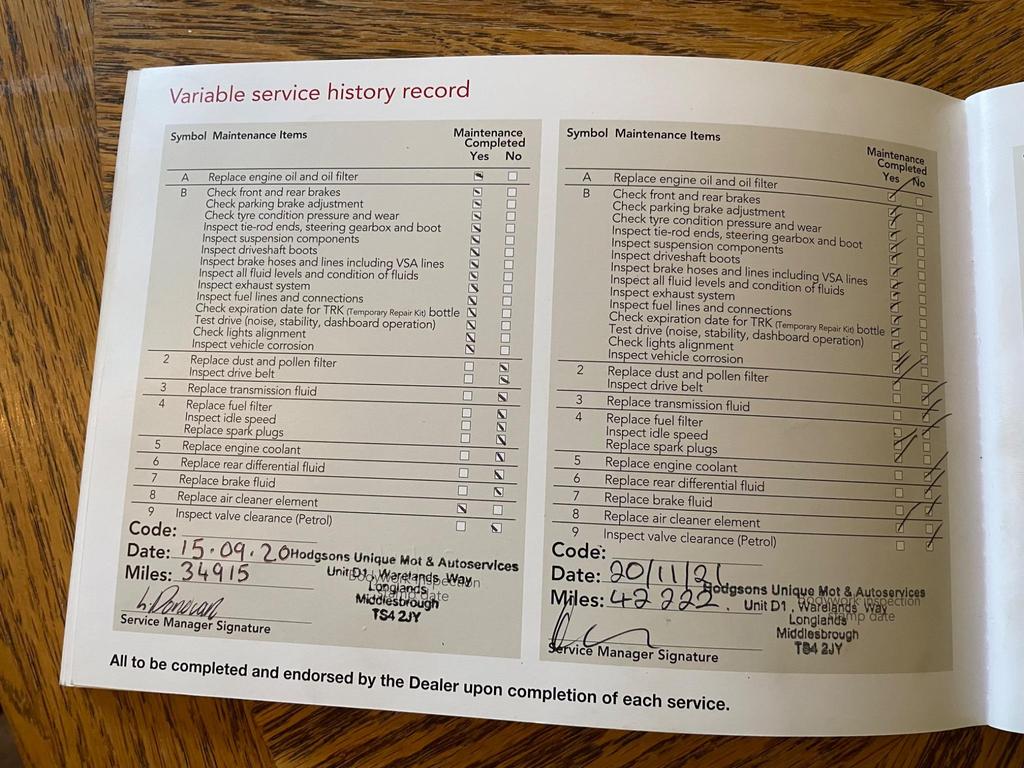 Variable service history record
Symbol Maintenance Items Maintenance Completed Yes No
A Replace engine oil and oil filter
B Check front and rear brakes
Check parking brake adjustment
Check tyre condition pressure and wear
Inspect tie-rod ends, steering gearbox and boot
Inspect suspension components
Inspect driveshaft boots
Inspect brake hoses and lines including VSA lines
Inspect all fluid levels and condition of fluids
Inspect exhaust system
Inspect fuel lines and connections
Check expiration date for TRK (Temporary Repair Kit) bottle
Test drive (noise, stability, dashboard operation)
Check lights alignment
Inspect vehicle corrosion
2 Replace dust and pollen filter
Inspect drive belt
3 Replace transmission fluid
4 Replace fuel filter
Inspect idle speed
Replace spark plugs
5 Replace engine coolant
6 Replace rear differential fluid
7 Replace brake fluid
8 Replace air cleaner element
9 Inspect valve clearance (Petrol)
Code:
Date: 15.09.20
Miles: 34915
L. Donovan
Service Manager Signature
Hodgsons Unique Mot & Autoservices
Unit D1, Warelands Way
Longlands
Middlesbrough
TS4 2JY
Bodywork inspection
stamp date
Symbol Maintenance Items Maintenance Completed Yes No
A Replace engine oil and oil filter
B Check front and rear brakes
Check parking brake adjustment
Check tyre condition pressure and wear
Inspect tie-rod ends, steering gearbox and boot
Inspect suspension components
Inspect driveshaft boots
Inspect brake hoses and lines including VSA lines
Inspect all fluid levels and condition of fluids
Inspect exhaust system
Inspect fuel lines and connections
Check expiration date for TRK (Temporary Repair Kit) bottle
Test drive (noise, stability, dashboard operation)
Check lights alignment
Inspect vehicle corrosion
2 Replace dust and pollen filter
Inspect drive belt
3 Replace transmission fluid
4 Replace fuel filter
Inspect idle speed
Replace spark plugs
5 Replace engine coolant
6 Replace rear differential fluid
7 Replace brake fluid
8 Replace air cleaner element
9 Inspect valve clearance (Petrol)
Code:
Date: 20/11/21
Miles: 42222.
Service Manager Signature
Hodgsons Unique Mot & Autoservices
Unit D1, Warelands Way
Longlands
Middlesbrough
TS4 2JY
Bodywork inspection
stamp date
All to be completed and endorsed by the Dealer upon completion of each service.